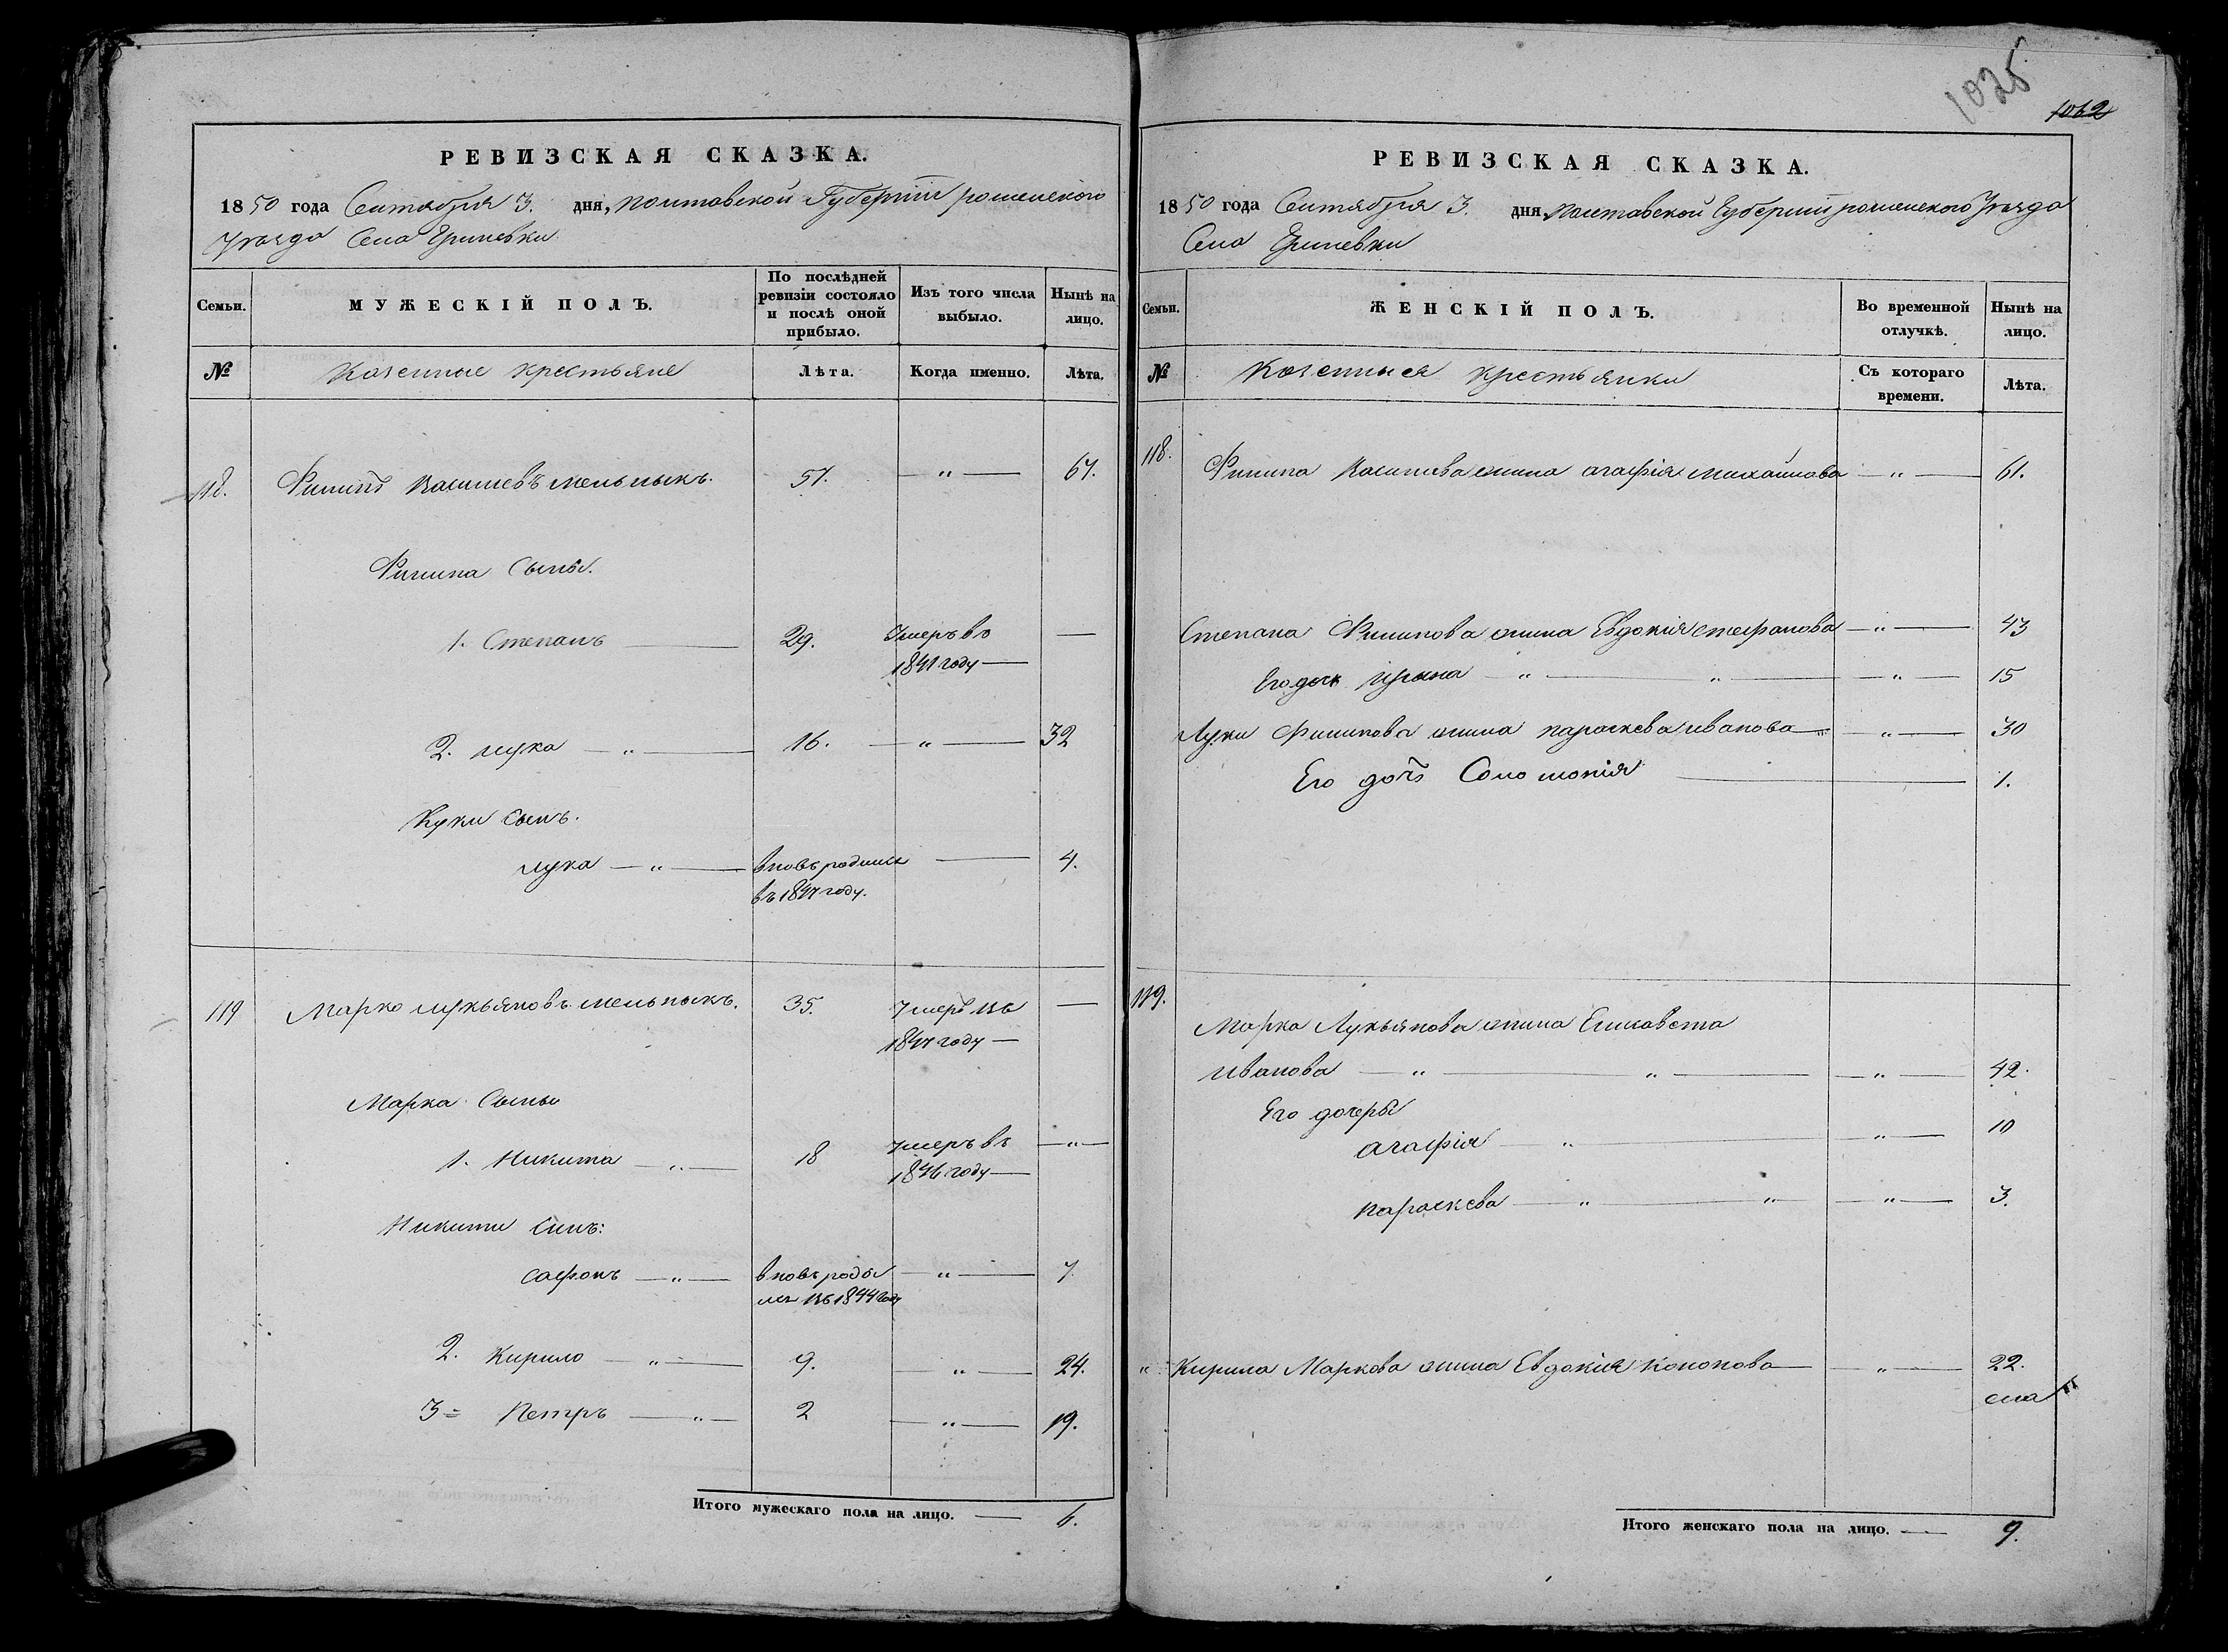 РЕВИЗСКАЯ СКАЗКА.
1850 года Сентября 3. дня, полтавской Губернии роменского
Уезда Села Гриневки
Семьи. МУЖЕСКІЙ ПОЛЪ. По послѣдней ревизіи состояло и послѣ оной прибыло. Изъ того числа выбыло. Нынѣ на лицо.
№ Казенные крестьяне Лѣта. Когда именно. Лѣта.
118. Филипъ Василиевъ мельныкъ. 51. — " — 67.
Филипа Сыны.
1. Степанъ — 29. Умеръ въ —
1841 году —
2. лука — " — 16. — " — 32
Луки сынъ.
лука — " — вновь родился — 4.
въ 1847 году.
119 Марко лукьяновъ мельныкъ. 35. Умеръ въ —
1847 году —
Марка Сыны
1. Никита — " — 18 Умеръ въ — " —
1846 году —
Никиты синъ:
сафонъ — " — вновь роди — " — 7
лся въ 1844 году
2. Кирило — " — 9. — " — 24.
3 = Петръ — " — 2 — " — 19.
Итого мужескаго пола на лицо. — 6.
1025
1062
РЕВИЗСКАЯ СКАЗКА.
1850 года Сентября 3. дня полтавской Губернии роменского Уезда
Села Гриневки
Семьи. ЖЕНСКІЙ ПОЛЪ. Во временной отлучкѣ. Нынѣ на лицо.
№ Казенныея крестьянки Съ котораго времени. Лѣта.
118. Филипа Василиева жина агафія михайлова — " — 61.
Степана Филипова жина Евдокія стефанова — " — 43
Его дочь Ирына — " — " — " — 15
Луки Филипова жина параскева иванова — " — 30
Его дочь Соломонія — 1.
119.
Марка Лукьянова жина Елисавета
иванова — " — " — " — 42.
Его дочеры
агафія — " — " — 10
параскева — " — " — " — 3.
" Кирила Маркова жина Евдокия кононова — " — 22.
Итого женскаго пола на лицо. — 9.